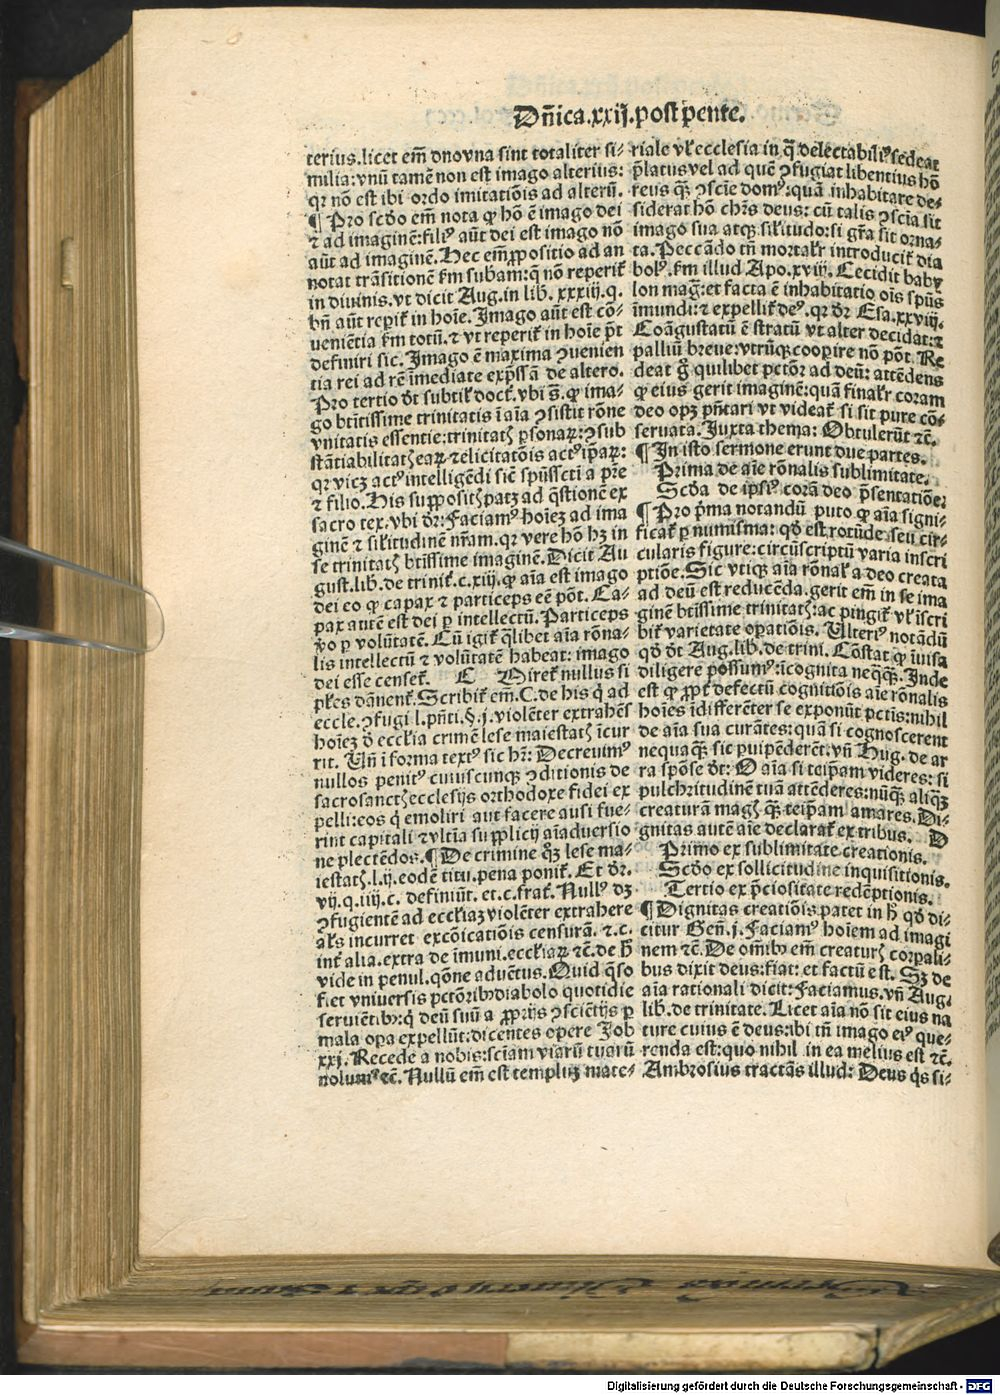 Dñica.xxij.post pente.
terius.licet em̃ duo oua sint totaliter si-
milia:vnũ tamẽ non est imago alterius:
qr nõ est ibi ordo imitatiõis ad alterũ.
¶ Pro scďo em̃ nota ꝙ hõ ẽ imago dei
⁊ ad imaginẽ:filiꝰ aũt dei est imago nõ
aũt ad imaginẽ. Hec em̃ ꝓpositio ad an
notat trãsitionẽ ẜm subam:q̃ nõ reperit̃
in diuinis.vt dicit Aug.in lib. xxxiij.q.
bñ aũt reperit̃ in hoĩe. Imago aũt est cõ-
ueniẽtia ẜm totũ.⁊ vt reperit̃ in hoĩe põt
definiri sic. Imago ẽ maxima ꝯuenien
tia rei ad rẽ ĩmediate exp̃ssã de altero.
Pro tertio ďt subtiľ doct̃. vbi s̃. ꝙ ima-
go btĩssime trinitatis ĩ aĩa ꝯsistit rõne
vnitatis essentie:trinitatꝭ ꝑsonaꝝ:ꝯsub
stãtiabilitatꝭ eaꝝ ⁊ elicitatõis actꝰ ip̃aꝝ:
qr vicꝫ actꝰ intelligẽdi siẽ spũssctĩ a pr̃e
⁊ filio. His suppositꝭ patꝫ ad q̃stionẽ ex
sacro tex. vbi ďr: Faciamꝰ hoĩeꝫ ad ima
ginẽ ⁊ siľitudinẽ nr̃am.qr vere hõ hꝫ in
se trinitatꝭ btĩssime imaginẽ. Dicit Au
gust. lib. de trinit̃.c.xiij.ꝙ aĩa est imago
dei eo ꝙ capax ⁊ particeps eẽ põt. Ca-
pax autẽ est dei ꝑ intellectũ. Particeps
ꝟo ꝑ volũtatẽ. Cũ igit̃ q̃libet aĩa rõna-
lis intellectũ ⁊ volũtatẽ habeat: imago
dei esse censet̃. C Miret̃ nullus si
pľes dãnent̃. Scribit̃ em̃. C. de his q̃ ad
eccle. ꝯfugi l. pñti.§.j. violẽter extrahẽs
hoĩeꝫ ď eccľia crimẽ lese maiestatꝭ ĩcur
rit. Vñ ĩ forma textꝰ sic hr̃: Decreuimꝰ
nullos penitꝰ cuiuscunqꝫ ꝯditionis de
sacrosanctꝭ ecclesijs orthodoxe fidei ex
pelli:eos q̃ emoliri aut facere ausi fue-
rint capitali ⁊ vltĩa supplicij aĩaduersio
ne plectẽdos.¶ De crimine q̃ꝫ lese ma-
iestatꝭ.l.ij.eodẽ titu.pena ponit̃. Et ďr.
vij.q.iiij.c. definiũt. et.c.frat̃. Nullꝰ dꝫ
ꝯfugientẽ ad eccľiaꝫ violẽter extrahere
aľs incurret excõicatiõis censurã. ⁊.c.
int̃ alia.extra de ĩmuni.eccľiaꝝ ⁊c̃.de h̃
vide in penul.q̃one aduẽtus. Quid q̃so
fiet vniuersis pctõribꝫ diabolo quotidie
seruiẽtibꝫ:q̃ deũ suũ a ꝓprijs ꝯsciẽtijs ꝑ
mala opa expellũt:dicentes opere Job
xxj. Recede a nobis:sciam viarũ tuarũ
nolumꝰ ⁊c̃. Nullũ em̃ est templuꝫ mate-
riale vľ ecclesia in q̃ delectabiliꝰ sedeat
p̃latus vel ad quẽ ꝯfugiat libentius hõ
reus q̃ꝫ ꝯscĩe domꝰ:quã inhabitare de-
siderat hõ chr̃s deus: cũ talis ꝯscĩa sit
imago sua atqꝫ siľitudo:si gr̃a sit orna-
ta. Peccãdo tm̃ mortaľr introducit̃ dia
bolꝰ. ẜm illud Apo.xviij. Cecidit baby
lon mag̃:et facta ẽ inhabitatio oĩs spũs
ĩmundi:⁊ expellit̃ deꝰ.qr ďr Esa.xxviij.
Coãgustatũ ẽ stratũ vt alter decidat:⁊
palliũ breue:vtrũqꝫ cooꝑire nõ põt. Re
deat g̃ quilibet pctõr ad deũ: attẽdens
ꝙ eius gerit imaginẽ:quã finaľr coram
deo opꝫ pñtari vt videat̃ si sit pure cõ-
seruata. Juxta thema: Obtulerũt ⁊c̃.
¶ In isto sermone erunt due partes.
Prima de aĩe rõnalis sublimitate.
Scďa de ipsiꝰ corã deo p̃sentatiõe:
¶ Pro p̃ma notandũ puto ꝙ aĩa signi-
ficat̃ ꝑ numisma: qďest rotũde seu cir-
cularis figure:circũscriptũ varia inscri
ptiõe. Sic vtiqꝫ aĩa rõnaľ a deo creata
ad deũ est reducẽda.gerit em̃ in se ima
ginẽ btĩssime trinitatꝭ:ac pingit̃ vľ iscri
bit̃ varietate oꝑatiõis. Ulteriꝰ notãdũ
qď ďt Aug. lib. de trini. Cõstat ꝙ ĩuisa
diligere possumꝰ:ĩcognita neq̃qꝫ. Inde
est ꝙ ꝓpt̃ defectũ cognitiõis aĩe rõnalis
hoĩes ĩdifferẽter se exponũt pctĩs:nihil
de aĩa sua curãtes:quã si cognoscerent
nequaqꝫ sic puipẽderẽt.vñ Hug. de ar
ra spõse ďt: O aĩa si teip̃am videres: si
pulchritudinẽ tuã attẽderes:nũqꝫ aliq̃ꝫ
creaturã magꝭ q̃ꝫ teip̃am amares. Di-
gnitas autẽ aĩe declarat̃ ex tribus. D
Primo ex sublimitate creationis.
Scďo ex sollicitudine inquisitionis.
Tertio ex p̃ciositate redẽptionis.
¶ Dignitas creatiõis patet in h̃ qď di-
citur Geñ.j. Faciamꝰ hoĩem ad imagi
nem ⁊c̃. De omĩbꝫ em̃ creaturꝭ corꝑali-
bus dixit deus:fiat: et factũ est. Sꝫ de
aĩa rationali dicit: Faciamus.vñ Aug.
lib.de trinitate. Licet aĩa nõ sit eius na
ture cuius ẽ deus:ibi tm̃ imago eiꝰ que-
renda est:quo nihil in ea melius est ⁊c̃.
Ambrosius tractãs illud: Deus q̃s si-
Digitalisierung gefördert durch die Deutsche Forschungsgemeinschaft - DFG